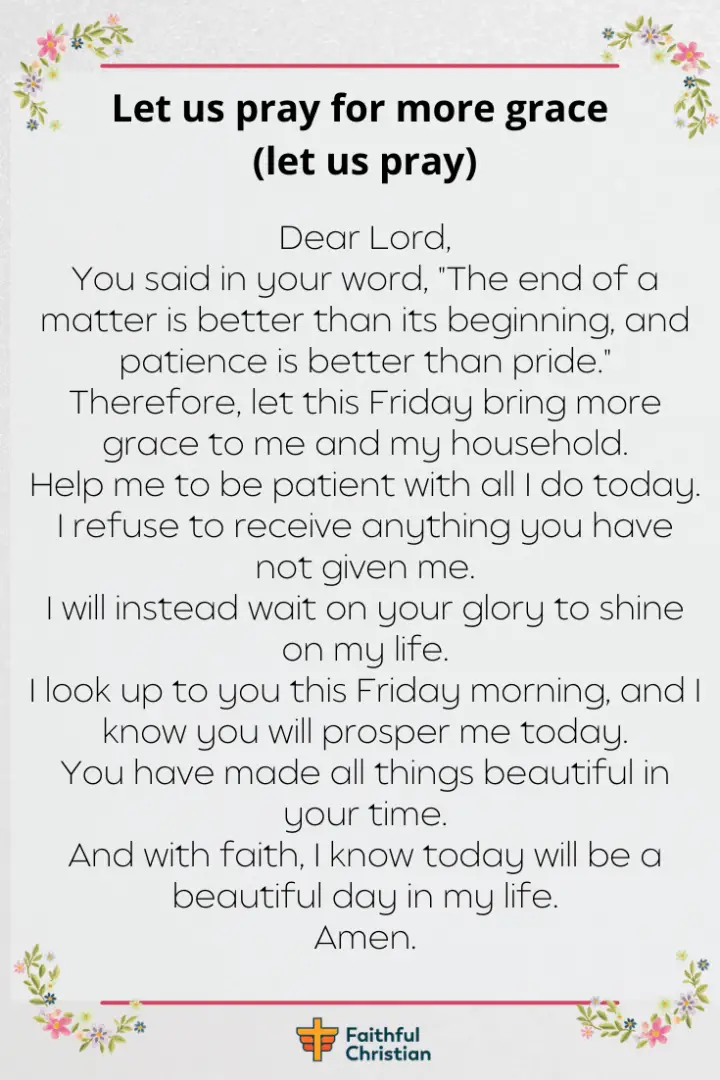 Let us pray for more grace
(let us pray)
Dear Lord,
You said in your word, "The end of a
matter is better than its beginning, and
patience is better than pride."
Therefore, let this Friday bring more
grace to me and my household.
Help me to be patient with all I do today.
I refuse to receive anything you have
not given me.
I will instead wait on your glory to shine
on my life.
I look up to you this Friday morning, and I
know you will prosper me today.
You have made all things beautiful in
your time.
And with faith, I know today will be a
beautiful day in my life.
Amen.
Faithful
Christian